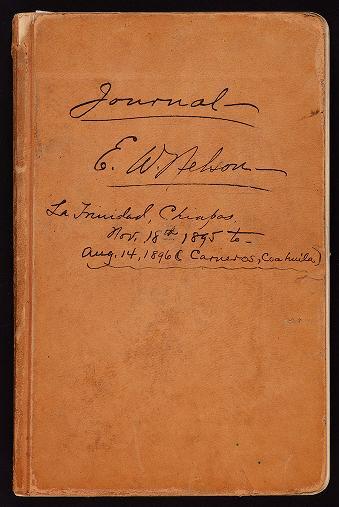 Journal
E. W. Nelson
La Trinidad, Chiapas,
Nov. 18th 1895 to
Aug. 14, 1896 (Carneros, Coahuila)